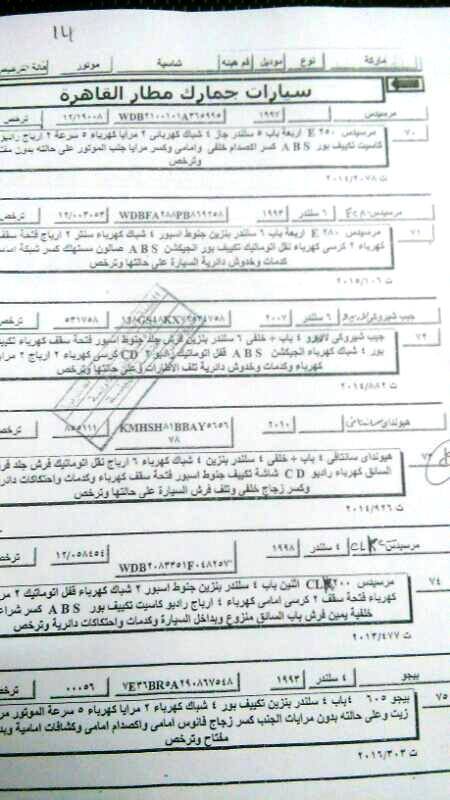 14
ماركة نوع موديل قم هينه شاسية موتور
سيارات جمارك مطار القاهرة
مرسيدس ١٩٩٧ WDB٢١٠٠١٠١A٣٦٥٩٩٥ ١٢/١٩٠٠٨ ترخص
٧٠ مرسيدس E ٢٥٠ اربعة باب ٥ سلندر جاز ٤ شباك كهربائى ٢ مرايا كهرباء ٥ سرعة ٢ ارباج راديو
كاسيت تكييف بور A B S كسر اكصدام خلفى وامامى وكسر مرايا جنب الموتور على حالته بدون مفتا
وترخص
ت ٢٠١٤/٢٠٧٨
مرسيدس E٢٨٠ ٦ سلندر ١٩٩٣ WDBFA٢٨٨PB٨٦٩٢٥٨ ١٢/٠٠٣٠٥٣ ترخص
٧١ مرسيدس E ٢٨٠ اربعة باب ٦ سلندر بنزين جنوط اسبور ٤ شباك كهرباء سنتر ٢ ارباج فتحة سقف
كهرباء ٢ كرسى كهرباء نقل اتوماتيك تكييف بور الجيكشن A B S صالون مستهلك كسر شبكة امام
كدمات وخدوش دائرية السيارة على حالتها وترخص
ت ٢٠١٥/١٠٦
جيب شيروكى ٦ سلندر ٢٠٠٧ ٥٣١٧٥٨ ترخص
٧٢ جيب شيروكى ٤ باب + خلفى ٦ سلندر بنزين فرش جلد جنوط اسبور فتحة سقف كهرباء تكييف
بور ٤ شباك كهرباء الجيكشن A B S قفل اتوماتيك راديو CD ٢ كرسى كهرباء ٢ ارباج ٢ مرايا
كهرباء وكدمات وخدوش دائرية تلف الاطارات وعلى حالتها وترخص
ت ٢٠١٤/٨٨٢
هيونداى سانتافى ٢٠١٠ KMHSH٨١BBAY٥٦٥٦
٧٨ ترخص
٧٣ هيونداى سانتافى ٤ باب + خلفى ٤ سلندر بنزين ٤ شباك كهرباء ٦ ارباج نقل اتوماتيك فرش جلد
السائق كهرباء راديو C D شاشة تكييف جنوط اسبور فتحة سقف كهرباء وكدمات واحتكاكات دائر
وكسر زجاج خلفى وتلف فرش السيارة على حالتها وترخص
ت ٢٠١٤/٩٢٦
مرسيدس CLK ٤ سلندر ١٩٩٨ WDB٢٠٨٣٣٥١F٠٤٨٢٥٧ ١٢/٠٥٨٤٥٤ ترخص
٧٤ مرسيدس CLK ٢٠٠ اثنين باب ٤ سلندر بنزين جنوط اسبور ٢ شباك كهرباء قفل اتوماتيك ٢ مر
كهرباء فتحة سقف ٢ كرسى امامى كهرباء ٤ ارباج راديو كاسيت تكييف بور A B S كسر شراع
خلفية يمين فرش باب السائق منزوع وبداخل السيارة وكدمات واحتكاكات دائرية وترخص
ت ٢٠١٣/٤٧٧
بيجو ٤ سلندر ١٩٩٣ ٧E٣٦BR٥A٢٩٠٨٦٧٥٤٨ ٠٠٠٥٦ ترخص
٧٥ بيجو ٦٠٥ ٤ باب ٤ سلندر بنزين تكييف بور ٤ شباك كهرباء ٢ مرايا كهرباء ٥ سرعة الموتور
زيت وعلى حالته بدون مرايات الجنب كسر زجاج فانوس امامى واكصدام امامى وكشافات امامية وبد
مفتاح وترخص
ت ٢٠١٦/٣٠٣